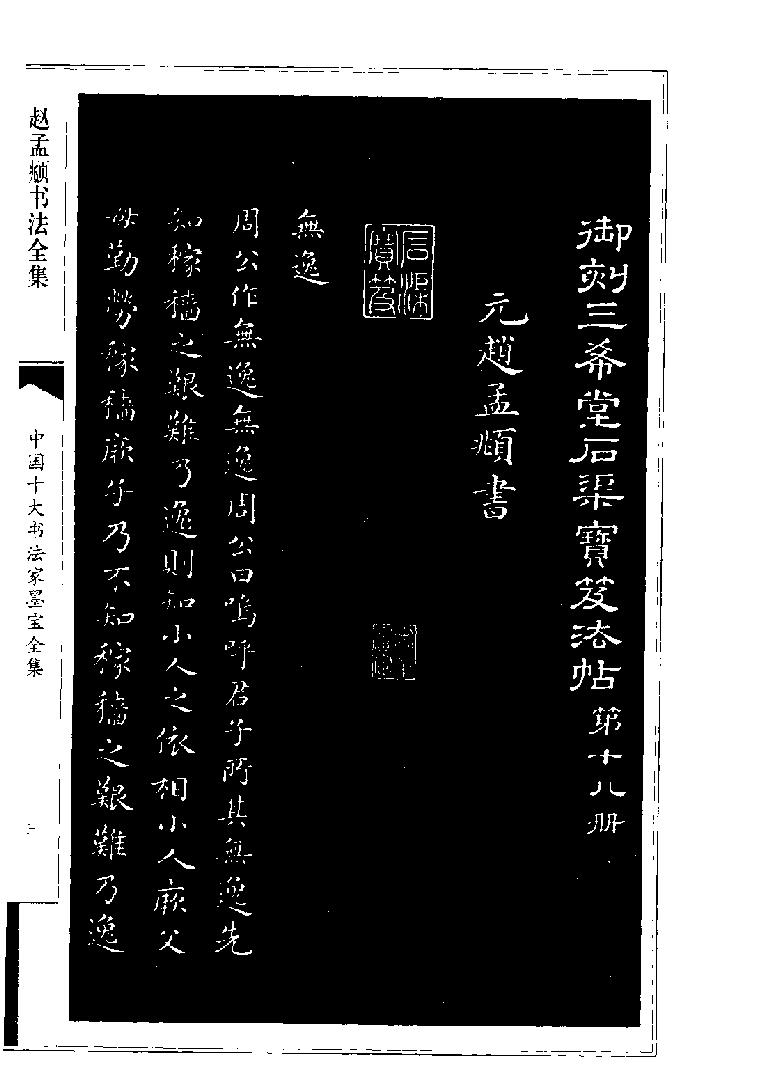 御刻三希堂石渠寶笈法帖第十八册
元趙孟頫書
石渠寶笈
無逸
周公作無逸無逸周公曰嗚呼君子所其無逸先
知稼穡之艱難乃逸則知小人之依相小人厥父
母勤勞稼穡厥子乃不知稼穡之艱難乃逸
赵孟頫书法全集
中国十大书法家墨宝全集